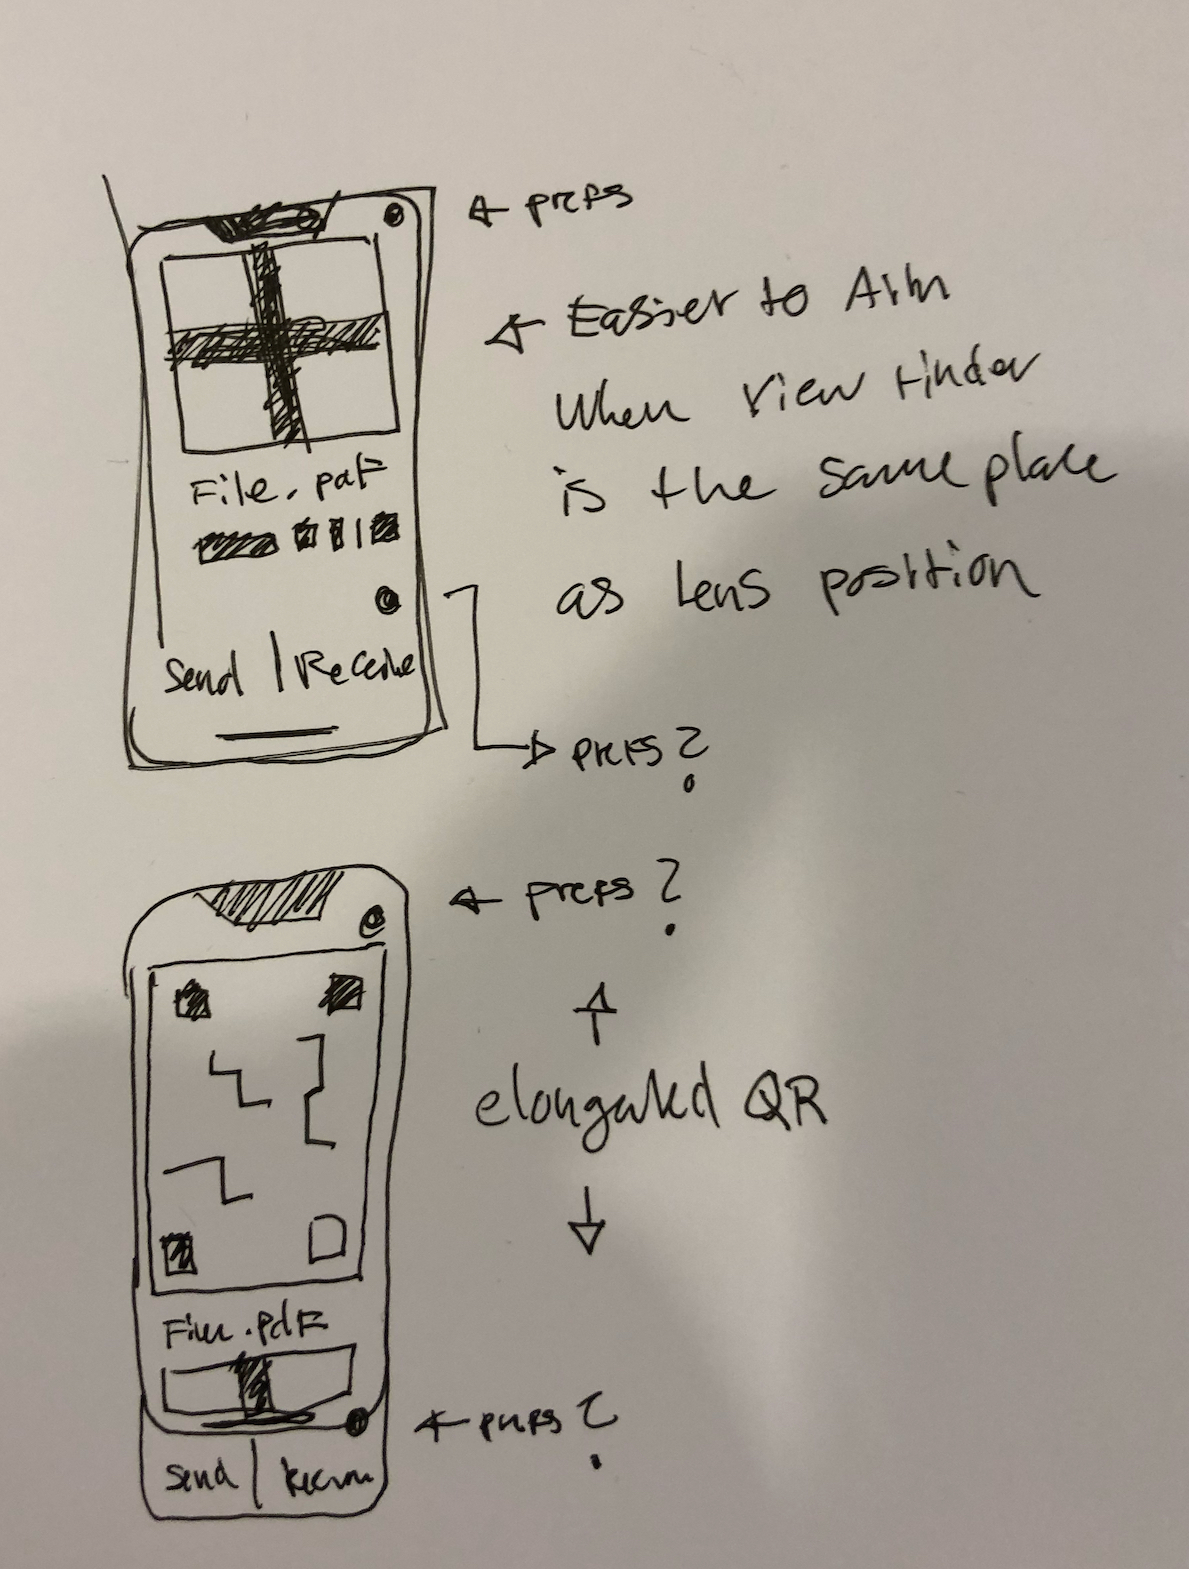 prefs
Easier to Aim
When view finder
is the same place
as lens position
File.pdf
Send | Receive
prefs?
prefs?
elongated QR
File.pdf
prefs?
Send | Receive